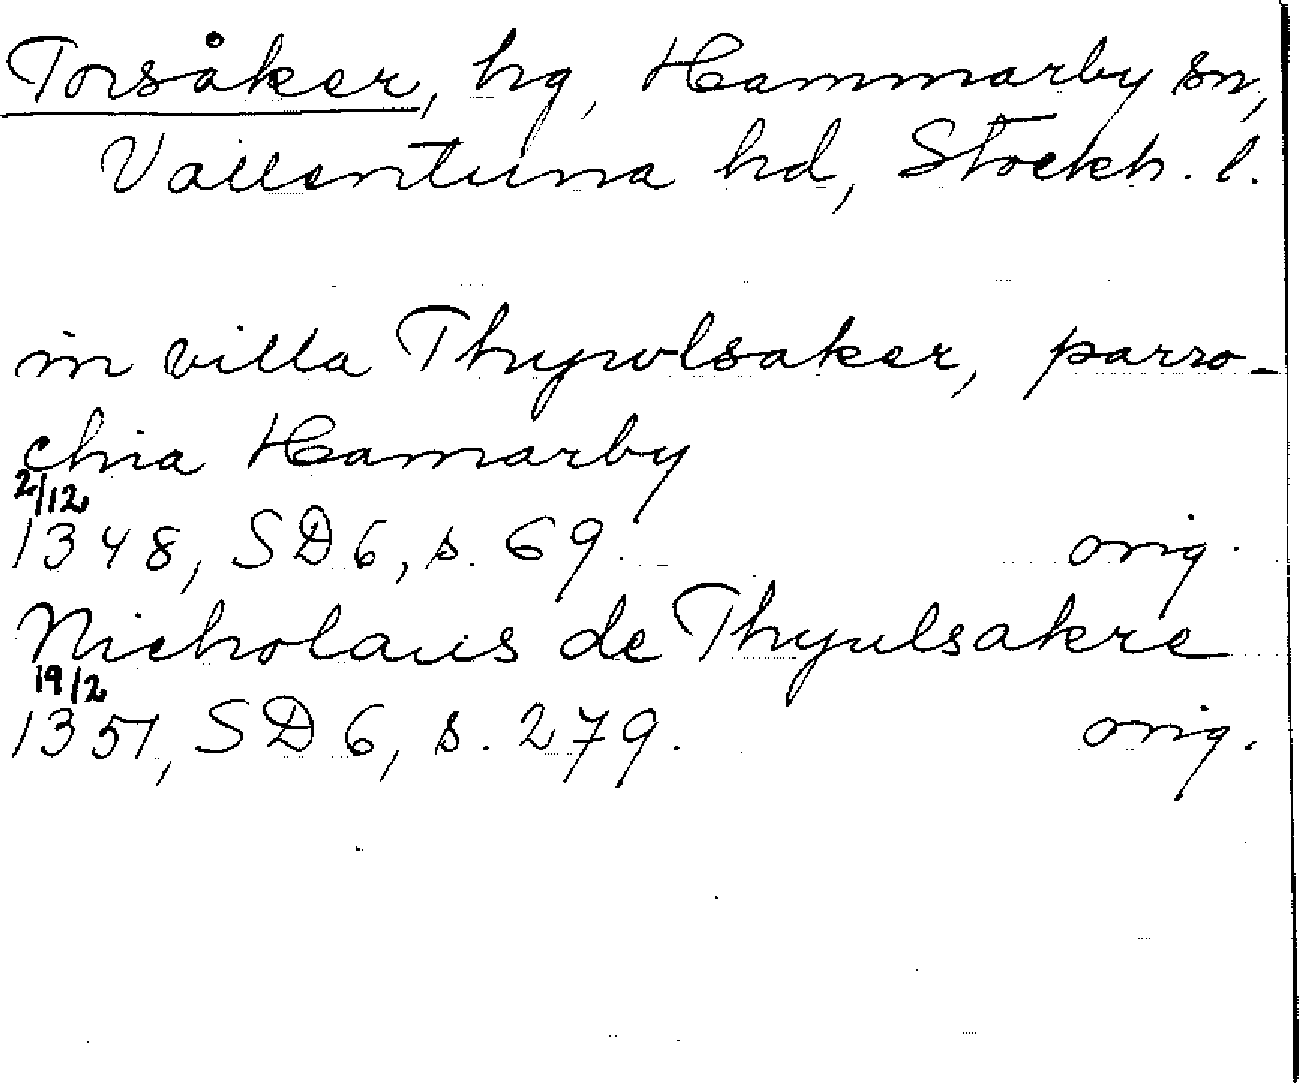 Torsåker, hg, Hammarby sn,
Vallentuna hd, Stockh. l.
in villa Thyrvlsaker, parro-
chia Hamarby
2/12
1348, SD 6, s. 69. orig.
Nicholaus de Thyulsakre
19/2
1351, SD 6, s. 279. orig.